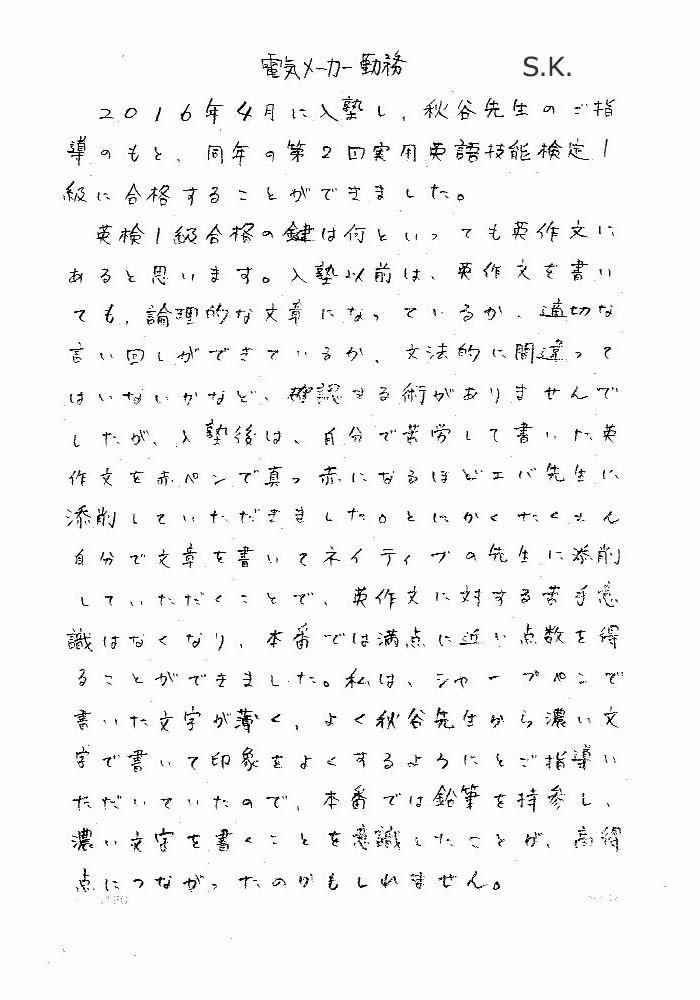 電気メーカー勤務 S.K.
2016年4月に入塾し、秋谷先生のご指
導のもと、同年の第2回実用英語技能検定1
級に合格することができました。
英検1級合格の鍵は何といっても英作文に
あると思います。入塾以前は、英作文を書い
ても、論理的な文章になっているか、適切な
言い回しができているか、文法的に間違って
はいないかなど、確認する術がありませんで
したが、入塾後は、自分で苦労して書いた英
作文を赤ペンで真っ赤になるほどエバ先生に
添削していただきました。とにかくたくさん
自分で文章を書いてネイティブの先生に添削
していただくことで、英作文に対する苦手意
識はなくなり、本番では満点に近い点数を得
ることができました。私は、シャープペンで
書いた文字が薄く、よく秋谷先生から濃い文
字で書いて印象をよくするようにとご指導い
ただいていたので、本番では鉛筆を持参し、
濃い文字を書くことを意識したことが、高得
点につながったのかもしれません。